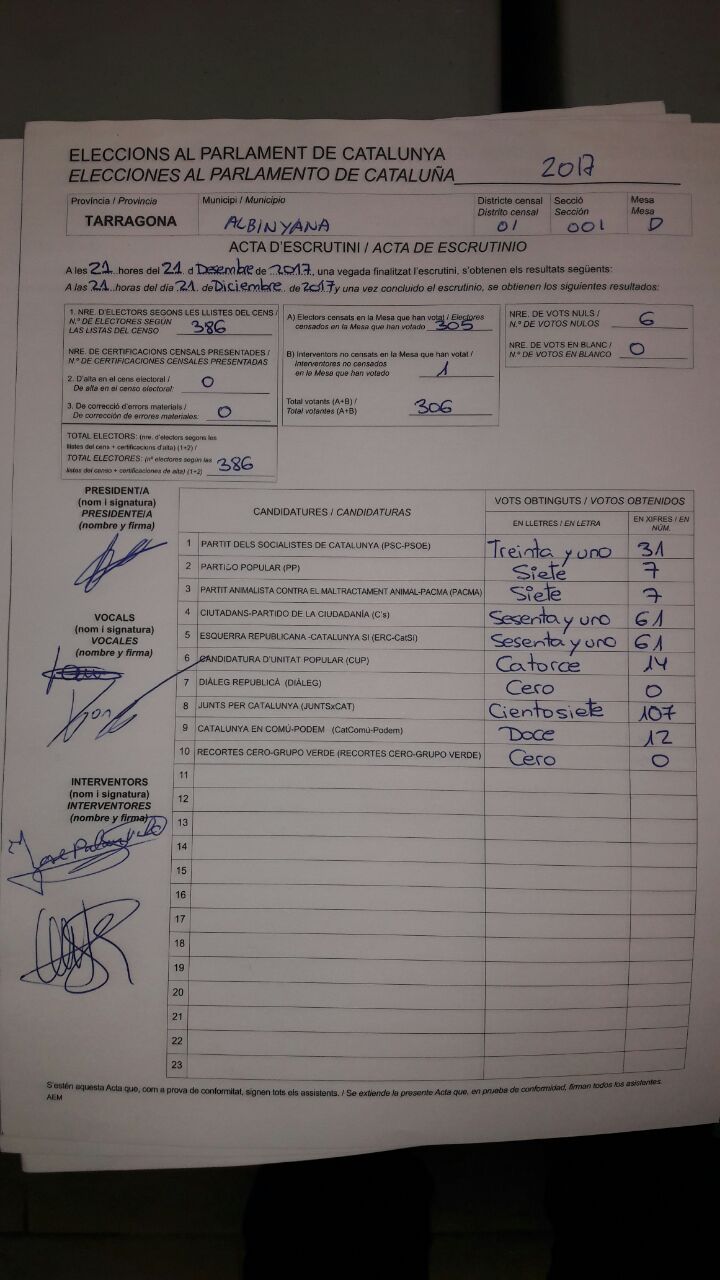 ELECCIONS AL PARLAMENT DE CATALUNYA
ELECCIONES AL PARLAMENTO DE CATALUÑA 2017
Província / Provincia
TARRAGONA
Municipi / Municipio
ALBINYANA
Districte censal
Distrito censal
01
Secció
Sección
001
Mesa
Mesa
D
ACTA D'ESCRUTINI / ACTA DE ESCRUTINIO
A les 21 hores del 21 d Desembre de 2017, una vegada finalitzat l'escrutini, s'obtenen els resultats següents:
A las 21 horas del día 21 de Diciembre de 2017 y una vez concluido el escrutinio, se obtienen los siguientes resultados:
1. NRE. D'ELECTORS SEGONS LES LLISTES DEL CENS /
N.º DE ELECTORES SEGÚN
LAS LISTAS DEL CENSO 386
NRE. DE CERTIFICACIONS CENSALS PRESENTADES /
N.º DE CERTIFICACIONES CENSALES PRESENTADAS
2. D'alta en el cens electoral /
De alta en el censo electoral: 0
3. De correcció d'errors materials /
De corrección de errores materiales: 0
TOTAL ELECTORS: (nre. d'electors segons les
llistes del cens + certificacions d'alta) (1+2) /
TOTAL ELECTORES: (nº electores según las
listas del censo + certificaciones de alta) (1+2) 386
A) Electors censats en la Mesa que han votat / Electores
censados en la Mesa que han votado 305
B) Interventors no censats en la Mesa que han votat /
Interventores no censados
en la Mesa que han votado 1
Total votants (A+B) /
Total votantes (A+B) 306
NRE. DE VOTS NULS /
N.º DE VOTOS NULOS 6
NRE. DE VOTS EN BLANC /
N.º DE VOTOS EN BLANCO 0
PRESIDENT/A
(nom i signatura)
PRESIDENTE/A
(nombre y firma)
VOCALS
(nom i signatura)
VOCALES
(nombre y firma)
INTERVENTORS
(nom i signatura)
INTERVENTORES
(nombre y firma)
CANDIDATURES / CANDIDATURAS
VOTS OBTINGUTS / VOTOS OBTENIDOS
EN LLETRES / EN LETRA
EN XIFRES / EN
NÚM.
1 PARTIT DELS SOCIALISTES DE CATALUNYA (PSC-PSOE) Treinta y uno 31
2 PARTIDO POPULAR (PP) Siete 7
3 PARTIT ANIMALISTA CONTRA EL MALTRACTAMENT ANIMAL-PACMA (PACMA) Siete 7
4 CIUTADANS-PARTIDO DE LA CIUDADANÍA (C's) Sesenta y uno 61
5 ESQUERRA REPUBLICANA -CATALUNYA SI (ERC-CatSi) Sesenta y uno 61
6 CANDIDATURA D'UNITAT POPULAR (CUP) Catorce 14
7 DIÀLEG REPUBLICÀ (DIÀLEG) Cero 0
8 JUNTS PER CATALUNYA (JUNTSxCAT) Ciento siete 107
9 CATALUNYA EN COMÚ-PODEM (CatComú-Podem) Doce 12
10 RECORTES CERO-GRUPO VERDE (RECORTES CERO-GRUPO VERDE) Cero 0
11
12
13
14
15
16
17
18
19
20
21
22
23
S'estén aquesta Acta que, com a prova de conformitat, signen tots els assistents. / Se extiende la presente Acta que, en prueba de conformidad, firman todos los asistentes.
AEM